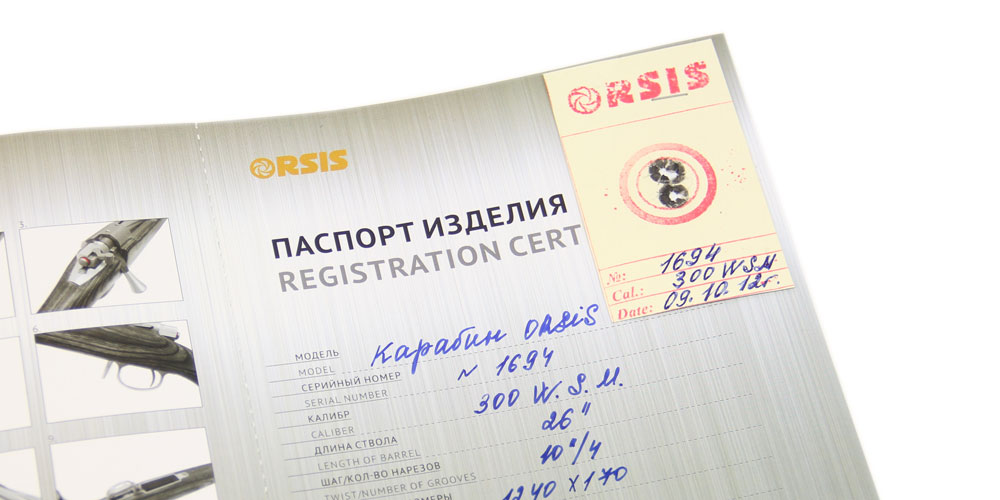 ORSIS
№: 1694
Cal.: 300 WSM
Date: 09.10.12г.
ORSIS
ПАСПОРТ ИЗДЕЛИЯ
REGISTRATION CERT
МОДЕЛЬ
MODEL
Карабин ORSiS
СЕРИЙНЫЙ НОМЕР
SERIAL NUMBER
№ 1694
КАЛИБР
CALIBER
300 W.S.M.
ДЛИНА СТВОЛА
LENGTH OF BARREL
26"
ШАГ/КОЛ-ВО НАРЕЗОВ
TWIST/NUMBER OF GROOVES
10"/4
1240 x 170